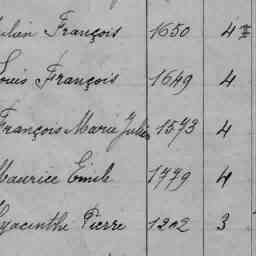 Julien François 1650 4
Louis François 1649 4
François Marie Julien 1573 4
Maurice Emile 1779 4
Hyacinthe Pierre 1202 3